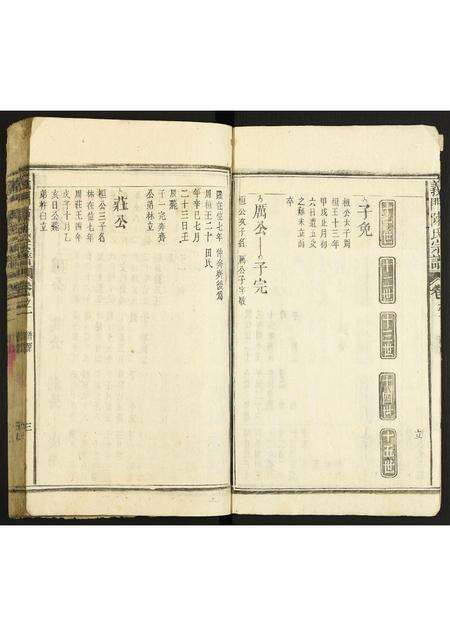 義門陳氏宗譜
卷之
十一世
十二世
十三世
十四世
十五世
子免
桓公太子周
桓王十三年
甲戌正月初
六日遭五父
之難未立而
卒
厲公
子完
桓公次子名
厲公子生敬
躍在位七年
仲奔齊後為
周桓王二十
田氏
年辛巳七月
二十三日王
原薨
子一完奔齊
公弟林立
莊公
桓公三子名
林在位七年
周莊王四年
戊子十月乙
亥日公薨
弟杵臼立
卷之一
三